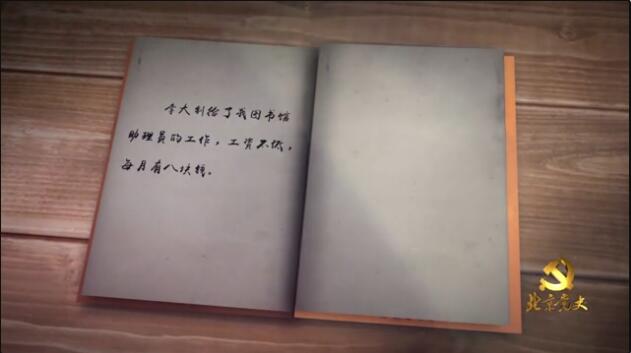 李大钊给了我图书馆
助理员的工作，工资不低，
每月有八块钱。
北京党史